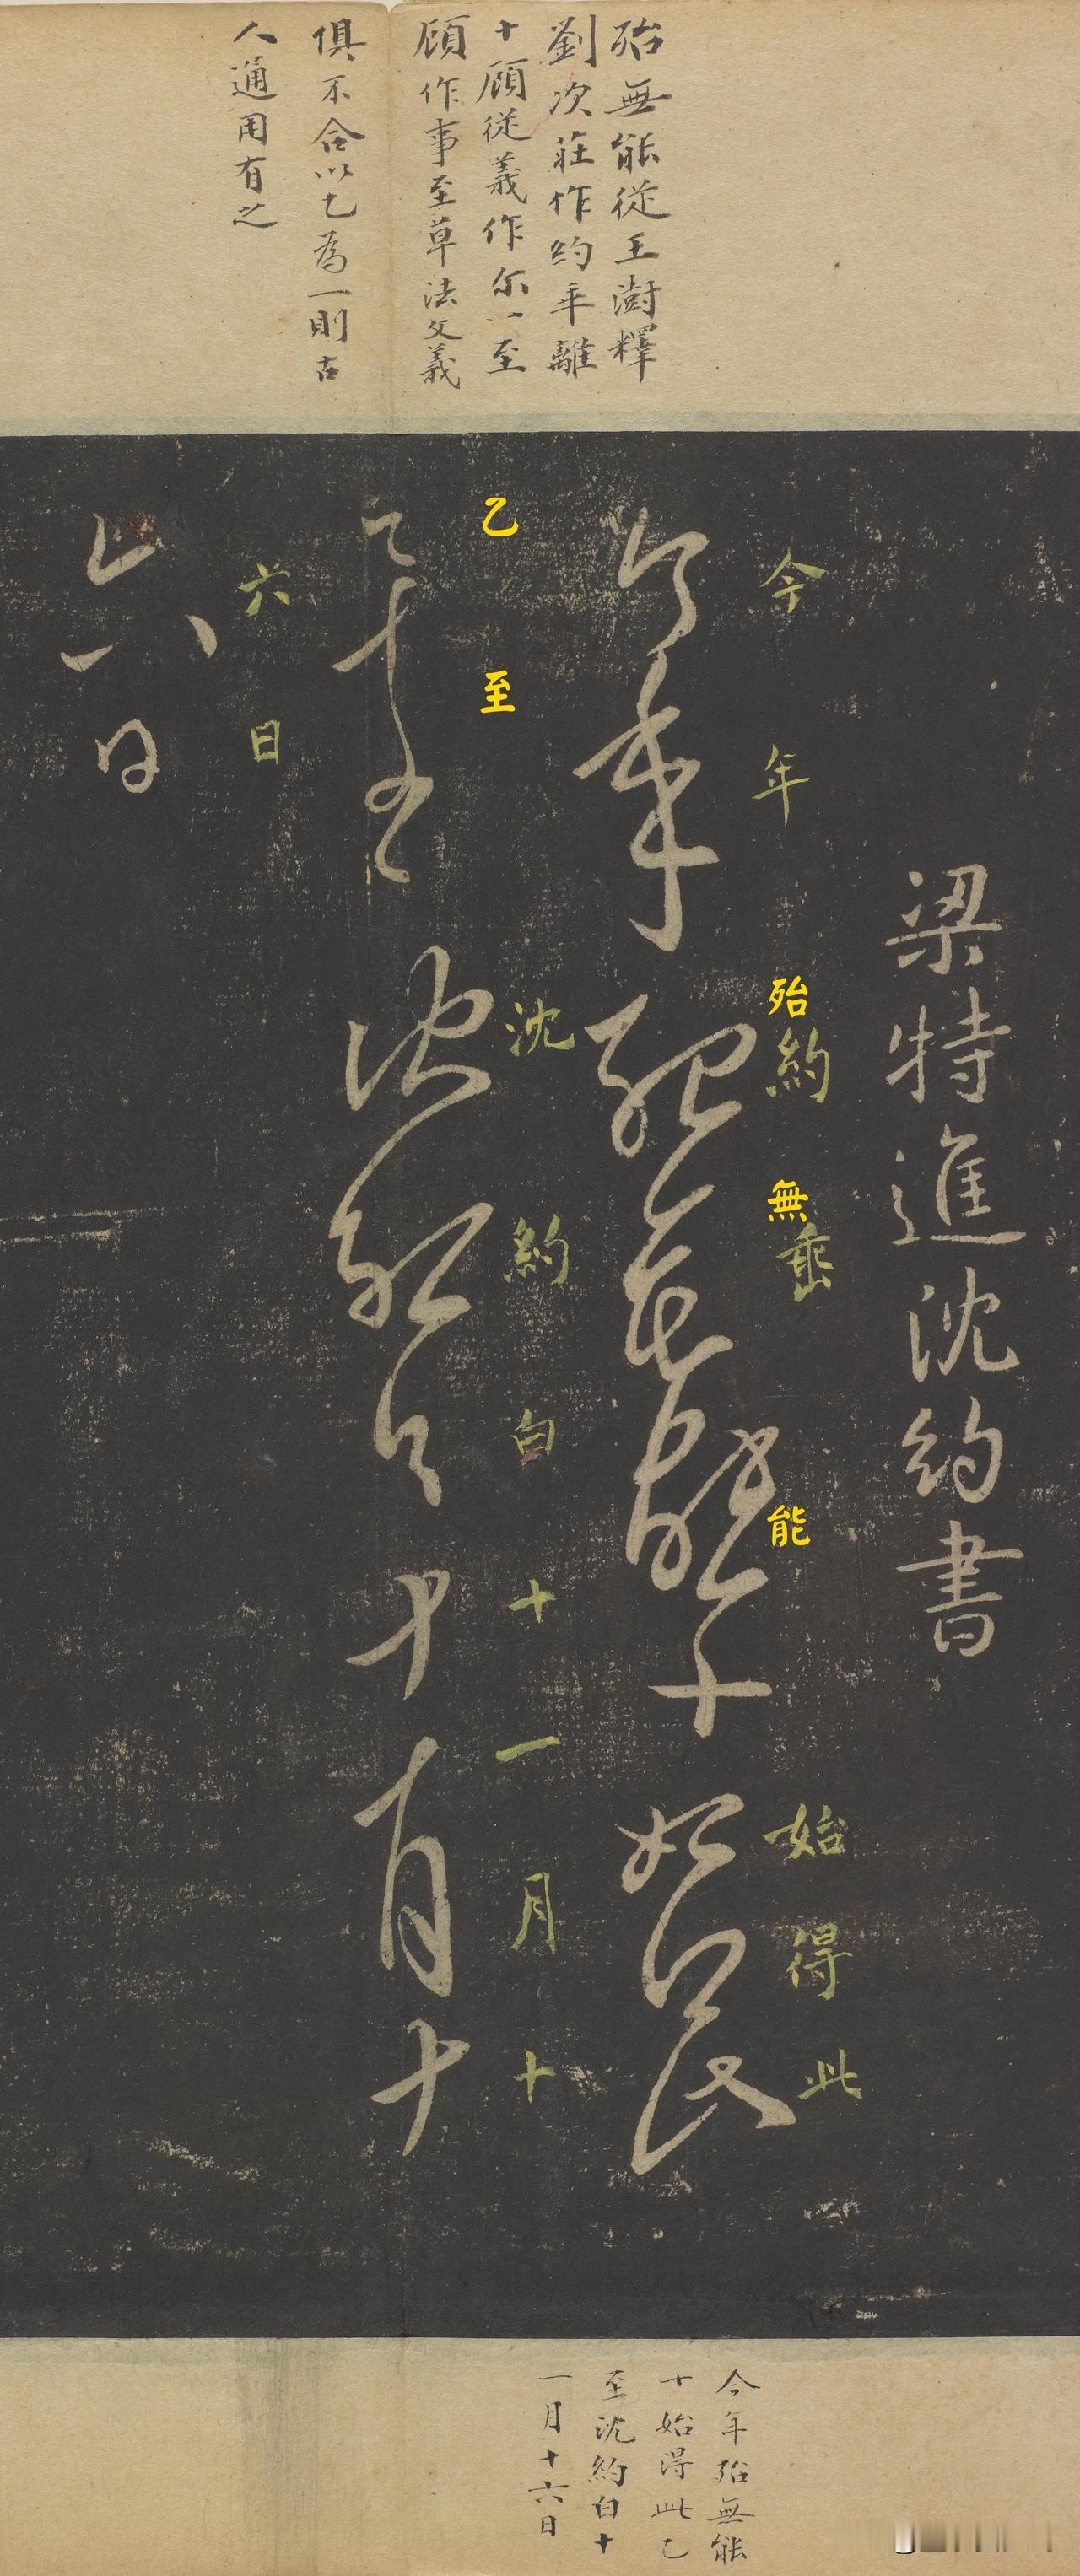 殆無能從王澍釋
劉次莊作約乖離
十顧從義作尓一至
顧作事至草法文義
俱不合以乙為一則古
人通用有之
梁特進沈約書
今年殆約無乖能始得此
今年殆無能十始得此
乙至沈約白十一月十
乙至沈約白十一月十
六日
六日
今年殆無能
十始得此乙
至沈約白十
一月十六日